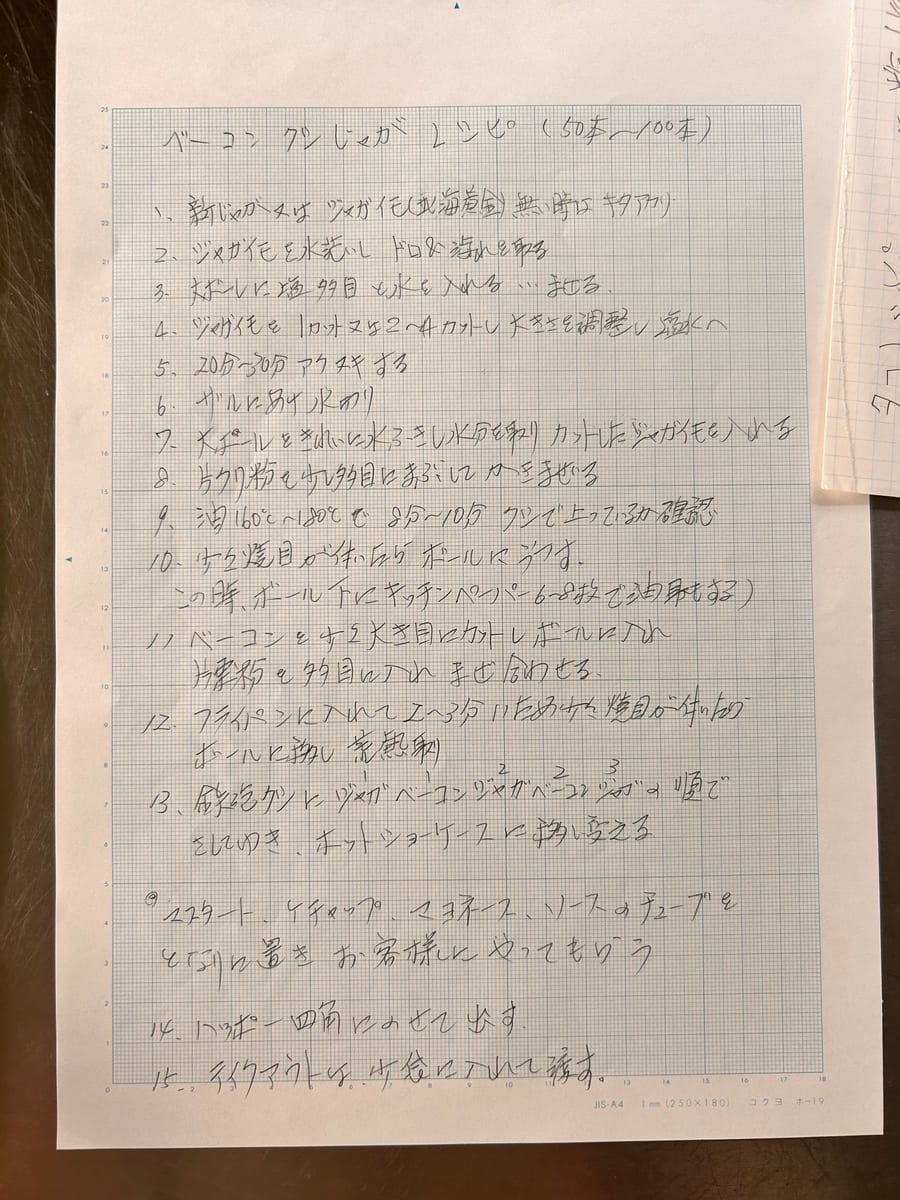 ベーコン クシじゃが レシピ (50本〜100本)
1、新じゃが又は ジャガイモ(北海黄金) 無い時は キタアカリ
2、ジャガイモを水洗いし ドロ& 汚れを取る
3、大ボールに塩多目と水を入れる…まぜる.
4、ジャガイモを 1カット又は2〜4カットし 大きさを調整し 塩水へ
5、20分〜30分 アクヌキする
6、ザルにあけ 水切り
7、大ボールをきれいに水ふきし水分を取り カットしたジャガイモを入れる
8、片クリ粉を少し多目にまぶして かきまぜる
9、油160℃〜180℃で 8分〜10分 クシで上っているか確認
10、少々焼目が付いたら ボールにうつす.
この時、ボール下にキッチンペーパー6〜8枚で油取りもする)
11 ベーコンを少々大き目にカットしボールに入れ
片栗粉を多目に入れ まぜ合わせる.
12、フライパンに入れて2〜3分 いため少々焼目が付いたら
ボールに移し 荒熱取り
1 1 2 2 3
13、鉄砲クシに ジャガ ベーコン ジャガ ベーコン ジャガの順で
さしてゆき、ホットショーケースに移し変える
◎マスタート、ケチャップ、マヨネース、ソースのチューブを
となりに置き お客様しにやってもらう
14、ハッポー四角にのせて出す.
15、テイクアウトは、少袋に入れて渡す。
25
24
23
22
21
20
19
18
17
16
15
14
13
12
11
10
9
8
7
6
5
4
3
2
1
0
0 2 3 6 8 9 10 11 12 13 14 15 16 17 18
JIS-A4 1mm(250×180) コクヨ ホ-19